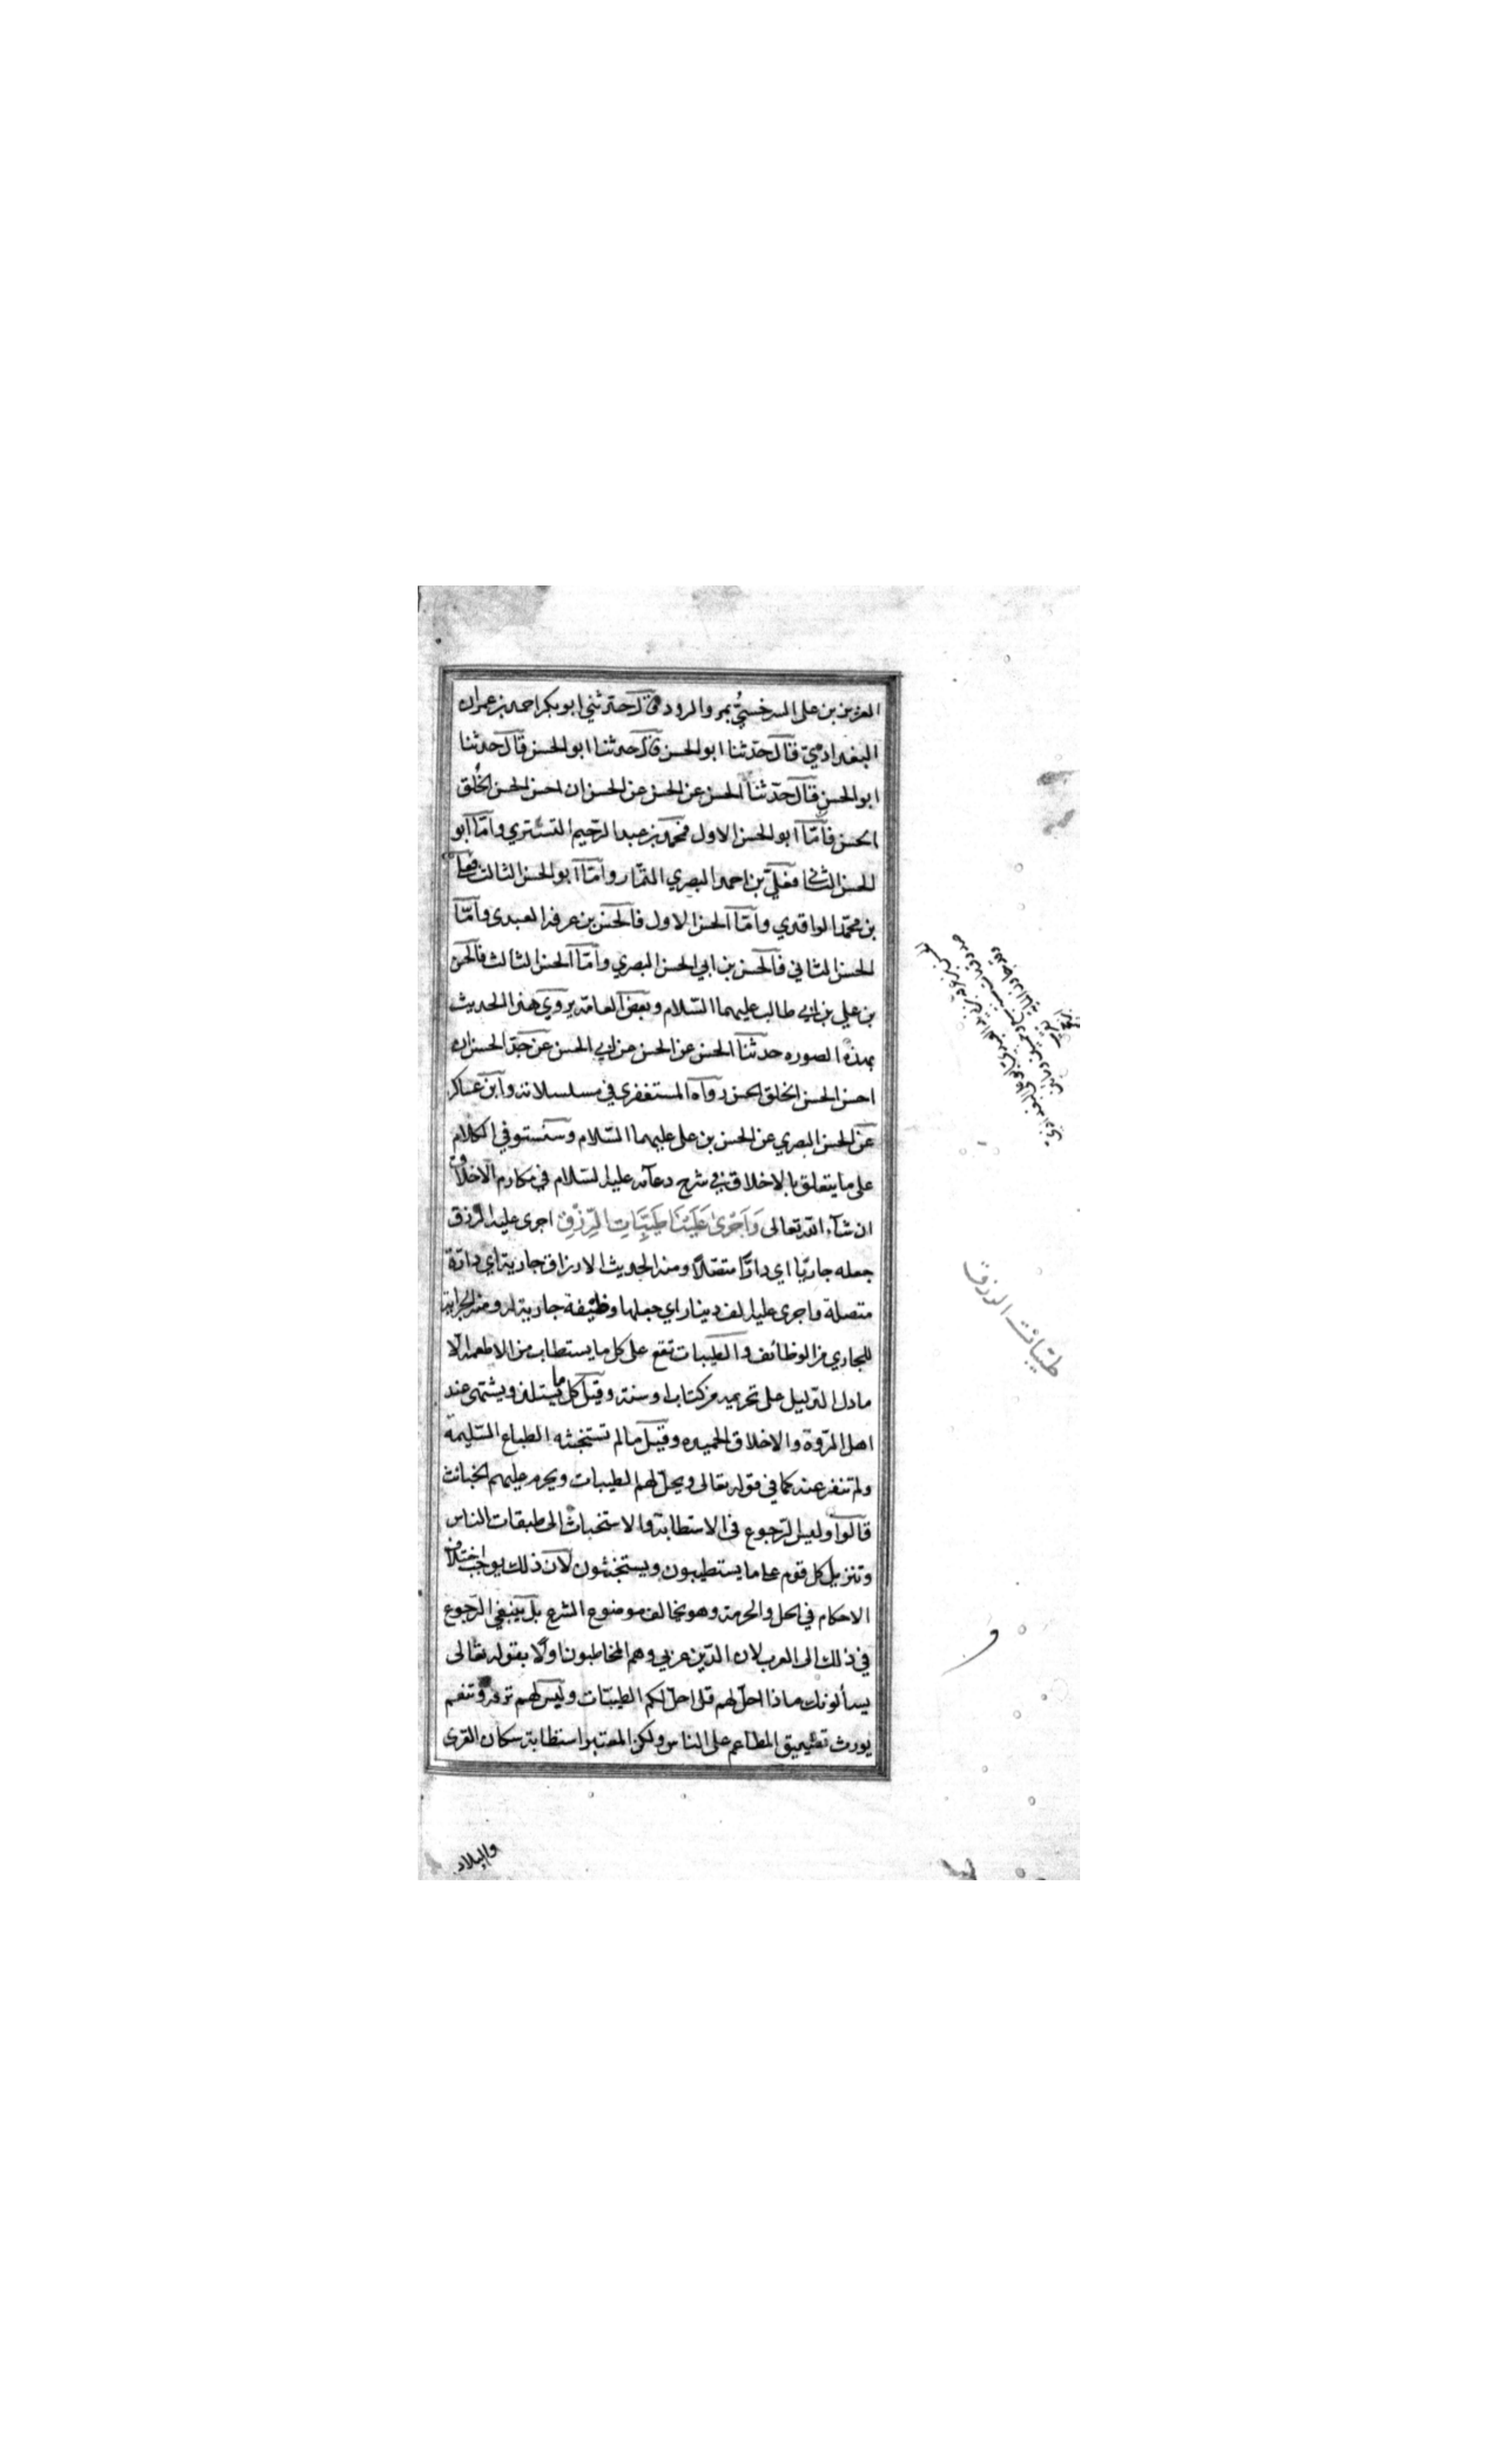 العزيز بن على السرخسيُّ بمرو الرود قال حدّثني ابو بكر احمد بن عمران
البغدادي قال حدّثنا ابو الحسن قال حدثنا ابو الحسن قال حدثنا
ابو الحسن قال حدّثنا الحسن عن الحسن عن الحسن ان احسن الحسن الخُلق
الحسن فامّا ابو الحسن الاول فمحمّد بن عبد الرّحيم التستري وامّا ابو
الحسن الثاني فعليّ بن احمد البصري التمّار وامّا ابو الحسن الثالث فعلي
بن محمّد الواقدي وامّا الحسن الاول فالحسن بن عرفه العبدى وامّا
الحسن الثاني فالحسن بن ابي الحسن البصري وامّا الحسن الثالث فالحسن
بن علي بن ابي طالب عليهما السّلام وبعض العامّه يروي هذا الحديث
بهذه الصوره حدثنا الحسن عن الحسن عن ابي الحسن عن جدّ الحسن ان
احسن الحسن الخلق الحسن رواه المستغفري في مسلسلاته وابن عساكر
عن الحسن البصري عن الحسن بن على عليهما السّلام وسنستوفي الكلام
على ما يتعلق بالاخلاق في شرح دعآئه عليه السّلام في مكارم الاخلاق
ان شآء الله تعالى وَاَجْرىٰ عَلَيْنَا طَيِّبَاتِ الرِّزْقِ اجرى عليه الرزق
جعله جاريًا اي دارًّا متصّلاً ومنه الحديث الارزاق جارية اي دارّة
متصلة واجرى عليه الف دينار اي جعلها وظيفة جارية له ومنه الجراية
للجاري من الوظائف والطيّبات تقع على كل ما يستطاب من الاطعمة الّا
ما دل الدّليل على تحريمه من كتاب او سنة وقيل كل ما يستلذ ويشتهى عند
اهل المروّة والاخلاق الحميده وقيل ما لم تستخبثه الطباع السّليمة
ولم تنفر عنه كما في قوله تعالى ويحلّ لهم الطيبات ويحرم عليهم الخبائث
قالوا وليس الرّجوع في الاستطابة والاستخباث الى طبقات الناس
وتنزيل كل قوم على ما يستطيبون ويستخبثون لانّ ذلك يوجب اختلاف
الاحكام في الحل والحرمة وهو يخالف موضوع الشرع بل ينبغي الرّجوع
في ذلك الى العرب لان الدّين عربي وهم المخاطبون اولًا بقوله تعالى
يسألونك ماذا احلّ لهم قل احلّ لكم الطيبّات وليس لهم ترفه وتنعم
يورث تضييق المطاعم على الناس ولكن المعتبر استطابة سكان القرى
طيّبات الرزق
والبلاد